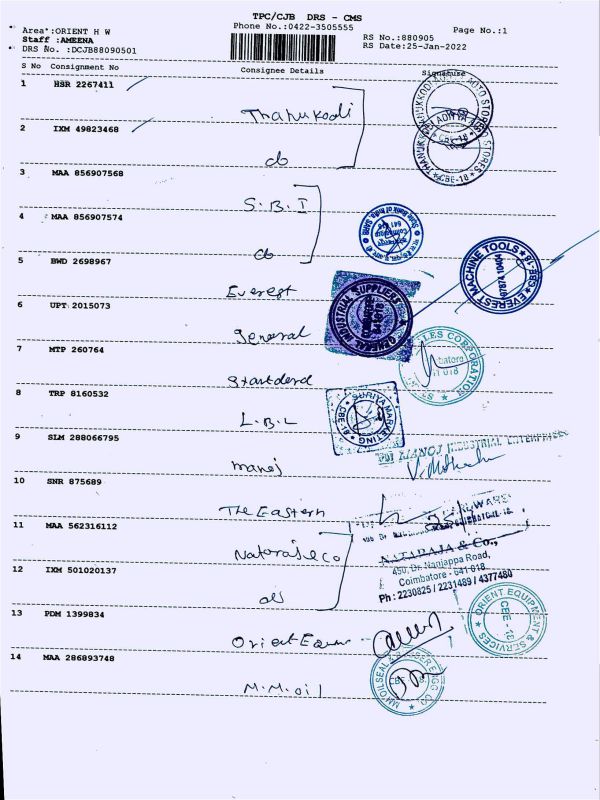 TPC/CJB DRS - CMS
Phone No.:0422-3505555
Page No.:1
Area :ORIENT H W
Staff :AMEENA
DRS No. :DCJB88090501
RS No:880905
RS Date:25-Jan-2022
S No Consignment No Consignee Details Signature
1 HSR 2267411 Thanukodi
2 IXM 49823468 do
3 MAA 856907568 S.B.I
4 MAA 856907574 do
5 BWD 2698967 Everest
6 UPT 2015073 General
7 MTP 260764
8 TRP 8160532 L.B.L
9 SLM 288066795 manoj
10 SNR 875689 The Eastern
11 MAA 562316112
12 IXM 501020137
13 PDM 1399834
14 MAA 286893748 M.M.oil
AUTO STORES
ADITYA
CBE-18
State Bank of India
EVEREST MACHINE TOOLS
GENERAL INDUSTRIAL SUPPLIERS
CORPORATION
SURIYA MARKETING
CBE-18
MANOJ INDUSTRIAL ENTERPRISES
NATARAJA & Co.,
450, Dr. Nanjappa Road,
Coimbatore - 641 018
Ph : 2230825 / 2231489 / 4377480
ORIENT EQUIPMENT & SERVICES
CBE - 18